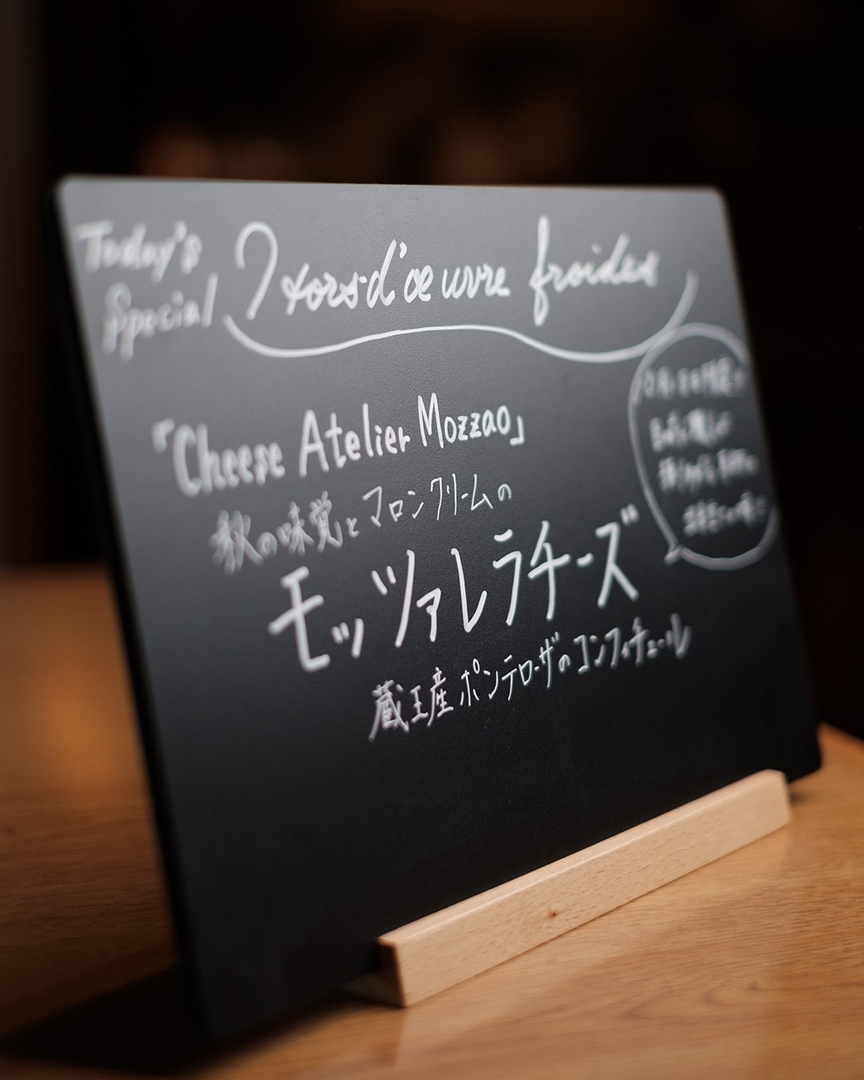 Today's
Special
Hors-d'œuvre froides
「Cheese Atelier Mozzao」
秋の味覚とマロンクリームの
モッツァレラチーズ
蔵王産ポンテローザのコンフィチュール